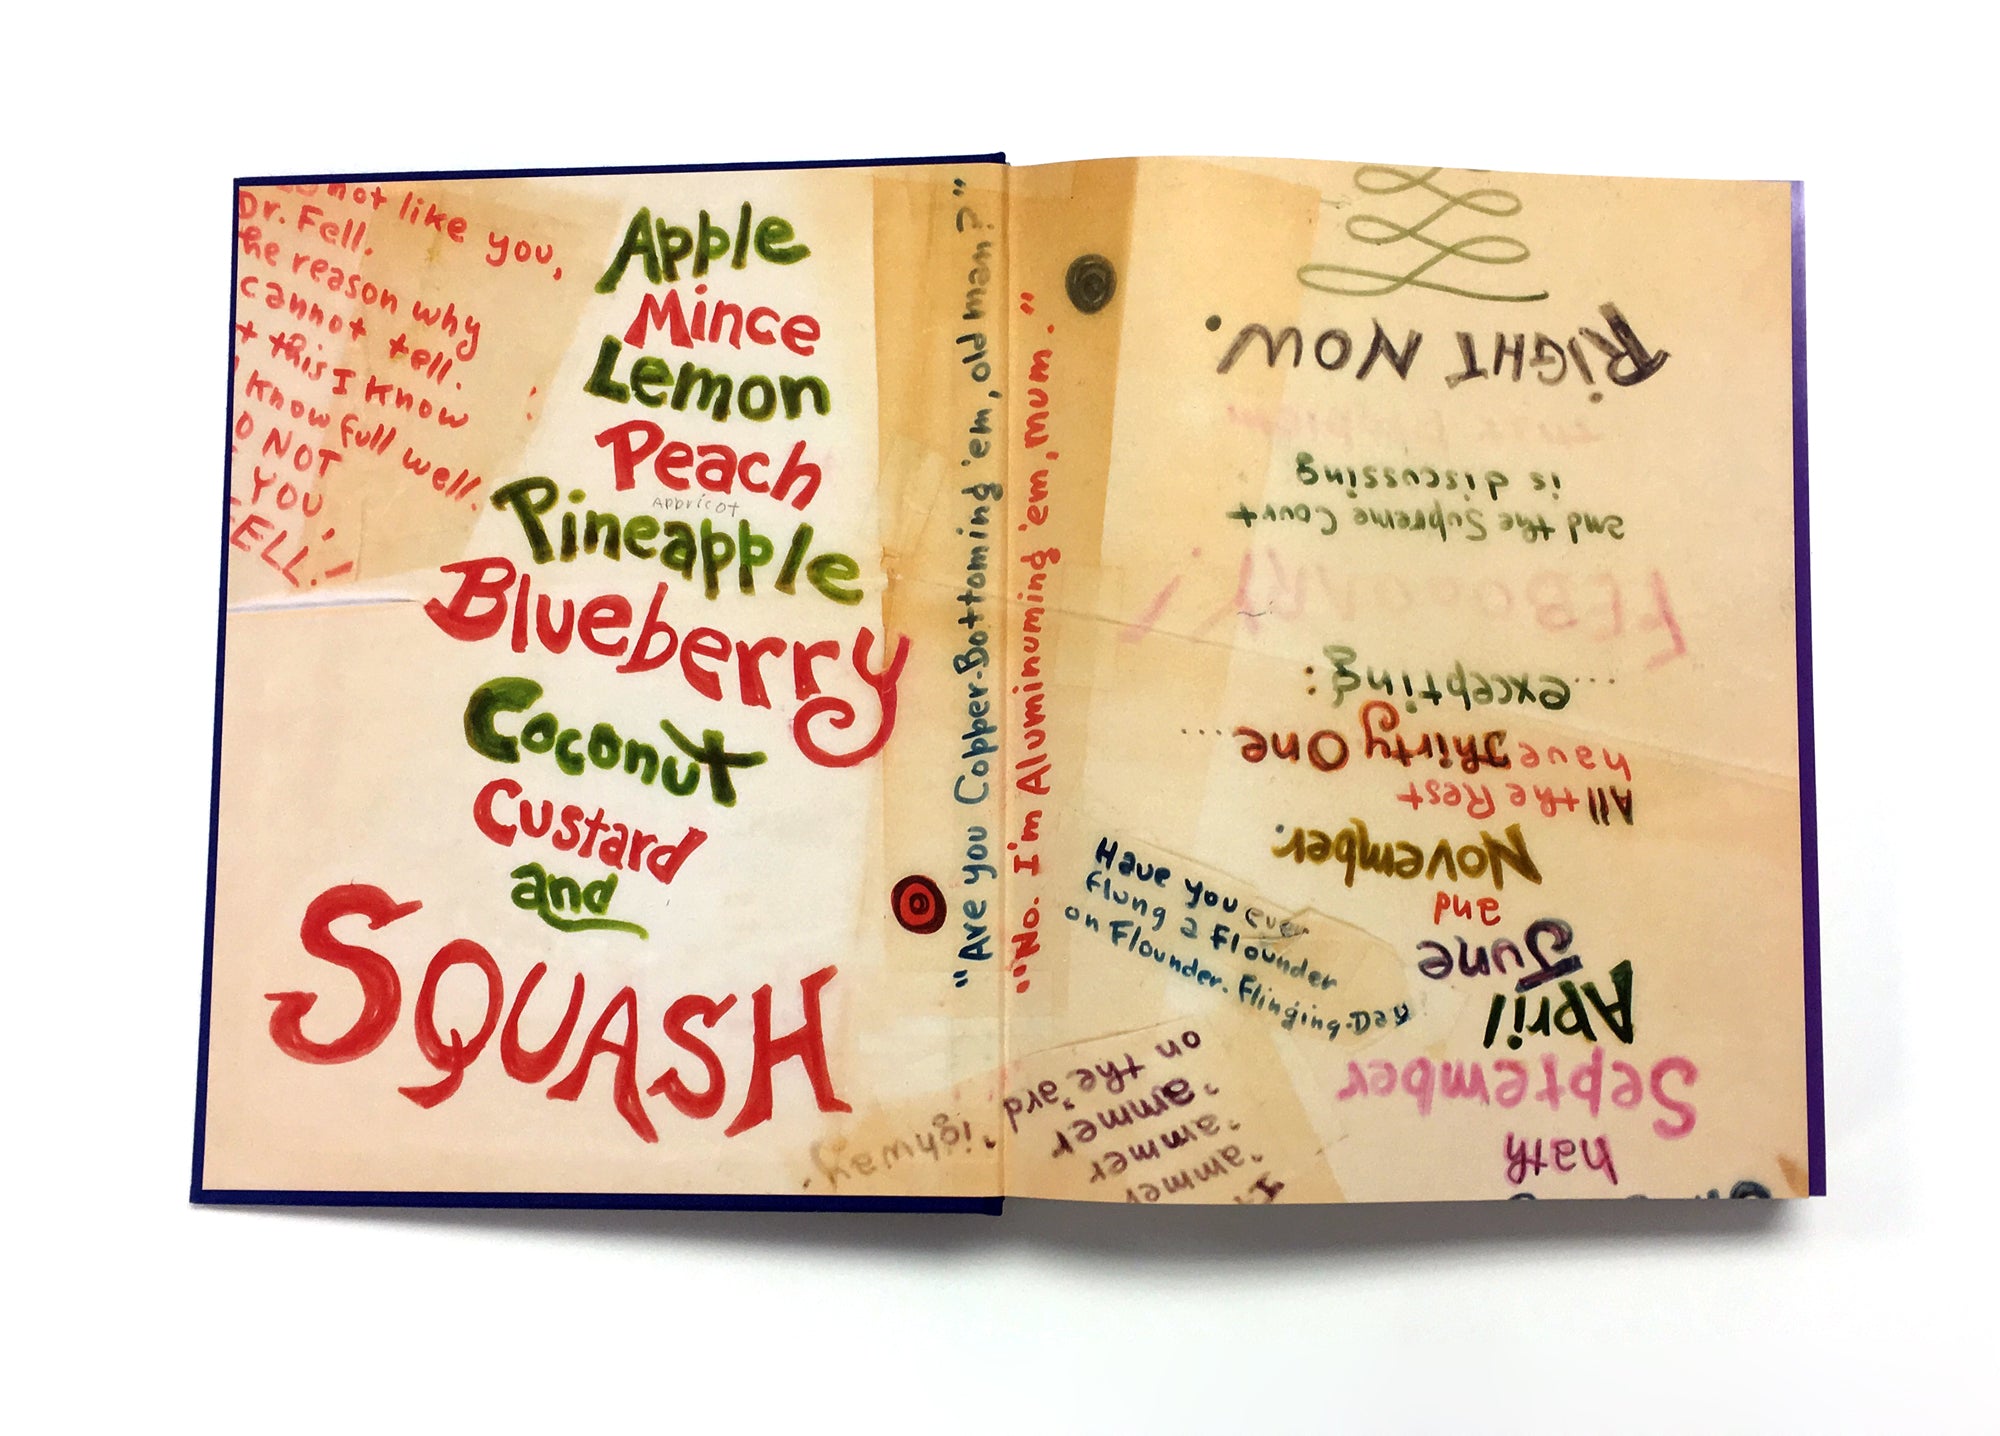 not like you,
Dr. Fell.
he reason why
cannot tell.
t this I know
I know full well.
O NOT
YOU,
FELL!
Apple
Mince
Lemon
Peach
Appricot
Pineapple
Blueberry
Coconut
Custard
and
SQUASH
"Are you Copper-Bottoming 'em, old man?"
"No. I'm Aluminuming 'em, mum."
Have you ever
flung a flounder
on Flounder-Flinging-Day
'ammer
'ammer
'ammer
on the 'ard 'ighway.
hath
September
April
June
and
November.
All the Rest
have Thirty One...
...excepting:
FEBOOARY!
and the Supreme Court
is discussing
RIGHT NOW.